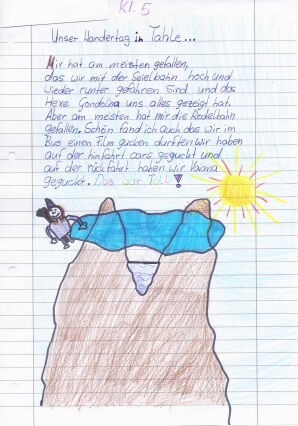 Kl. 5
Unser Wandertag in Tahle...
Mir hat am meisten gefallen,
das wir mit der Seielbahn hoch und
wieder runter gefahren sind und das
Hexe Gondolina uns alles gezeigt hat.
Aber am mesten hat mir die Rodelbahn
gefallen. Schön fand ich auch das wir im
Bus einen Film gucken durften wir haben
auf der hinfahrt cars geguckt und
auf der rückfahrt haben wir Vaiana
geguckt. Das war Toll!